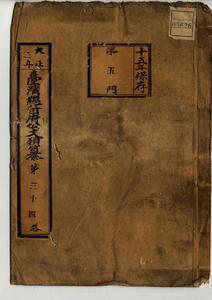 十五年保存
第五門
大正
二年
臺灣總督府公文類纂
第三十四卷